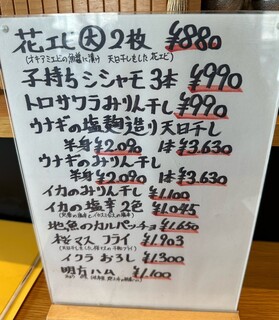 花エビ 大 2枚 ¥880
(オキアミエビの魚醤に漬け 天日干しをした花エビ)
子持ちシシャモ3本 ¥990
トロサワラみりん干し ¥990
ウナギの塩麹造り天日干し
半身 ¥2.090 1本 ¥3.630
ウナギのみりん干し
半身 ¥2.090 1本 ¥3.630
イカのみりん干し ¥1.100
イカの塩辛2色 ¥1.045
地魚のカルパッチョ ¥1.650
桜マス フライ ¥1.903
イクラおろし ¥1.300
明方ハム ¥1.100